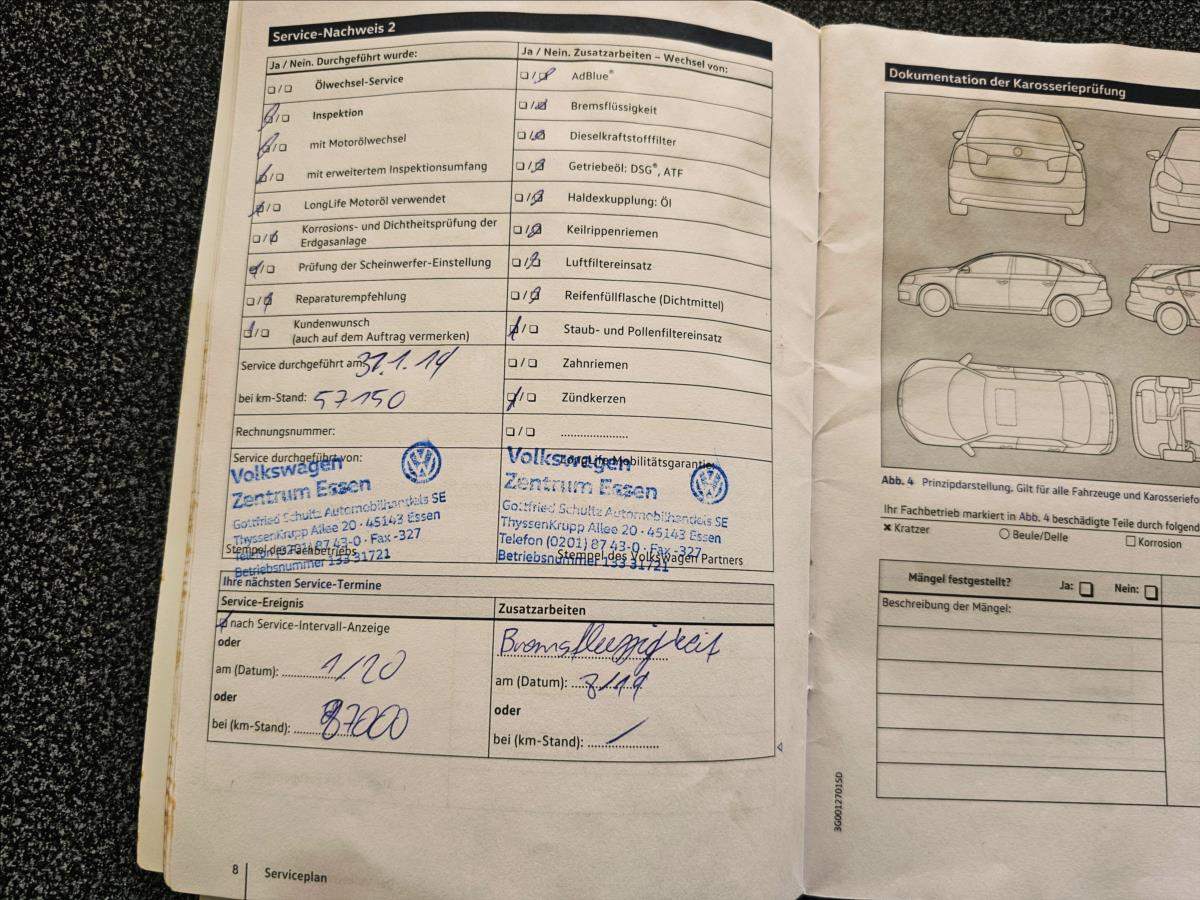 Service-Nachweis 2
Ja / Nein. Durchgeführt wurde:
Ölwechsel-Service
Inspektion
mit Motorölwechsel
mit erweitertem Inspektionsumfang
LongLife Motoröl verwendet
Korrosions- und Dichtheitsprüfung der
Erdgasanlage
Prüfung der Scheinwerfer-Einstellung
Reparaturempfehlung
Kundenwunsch
(auch auf dem Auftrag vermerken)
Service durchgeführt am: 31.1.19
bei km-Stand: 57150
Rechnungsnummer:
Service durchgeführt von:
Volkswagen
Zentrum Essen
Gottfried Schultz Automobilhandels SE
ThyssenKrupp Allee 20 · 45143 Essen
Telefon (0201) 87 43-0 · Fax -327
Betriebsnummer 133 31721
Stempel des Fachbetriebs
Ja / Nein. Zusatzarbeiten – Wechsel von:
AdBlue®
Bremsflüssigkeit
Dieselkraftstofffilter
Getriebeöl: DSG®, ATF
Haldexkupplung: Öl
Keilrippenriemen
Luftfiltereinsatz
Reifenfüllflasche (Dichtmittel)
Staub- und Pollenfiltereinsatz
Zahnriemen
Zündkerzen
LongLife Mobilitätsgarantie
Volkswagen
Zentrum Essen
Gottfried Schultz Automobilhandels SE
ThyssenKrupp Allee 20 · 45143 Essen
Telefon (0201) 87 43-0 · Fax -327
Betriebsnummer 133 31721
Stempel des Volkswagen Partners
Ihre nächsten Service-Termine
Service-Ereignis
nach Service-Intervall-Anzeige
oder
am (Datum): 1/20
oder
bei (km-Stand): 87000
Zusatzarbeiten
Bremsflüssigkeit
am (Datum): 8/19
oder
bei (km-Stand): /
8 Serviceplan
Dokumentation der Karosserieprüfung
Abb. 4 Prinzipdarstellung. Gilt für alle Fahrzeuge und Karosseriefo
Ihr Fachbetrieb markiert in Abb. 4 beschädigte Teile durch folgend
Kratzer
Beule/Delle
Korrosion
Mängel festgestellt? Ja: Nein:
Beschreibung der Mängel:
3G0012701SD